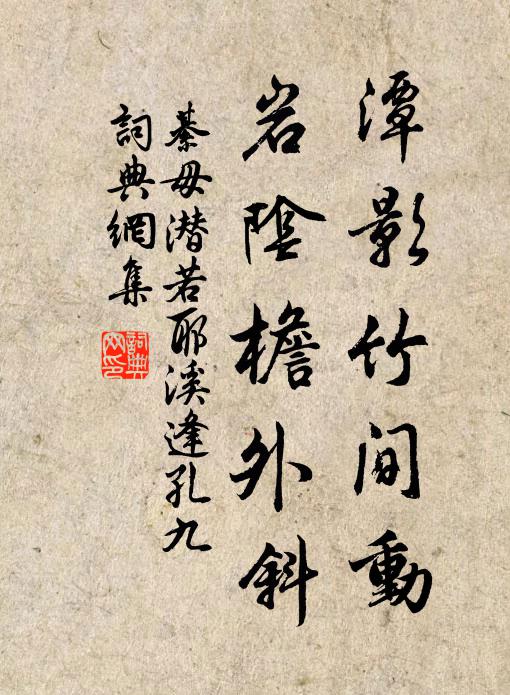 潭影竹間動
岩陰檐外斜
綦毋潛若耶溪逢孔九
詞典網集
詞典网印